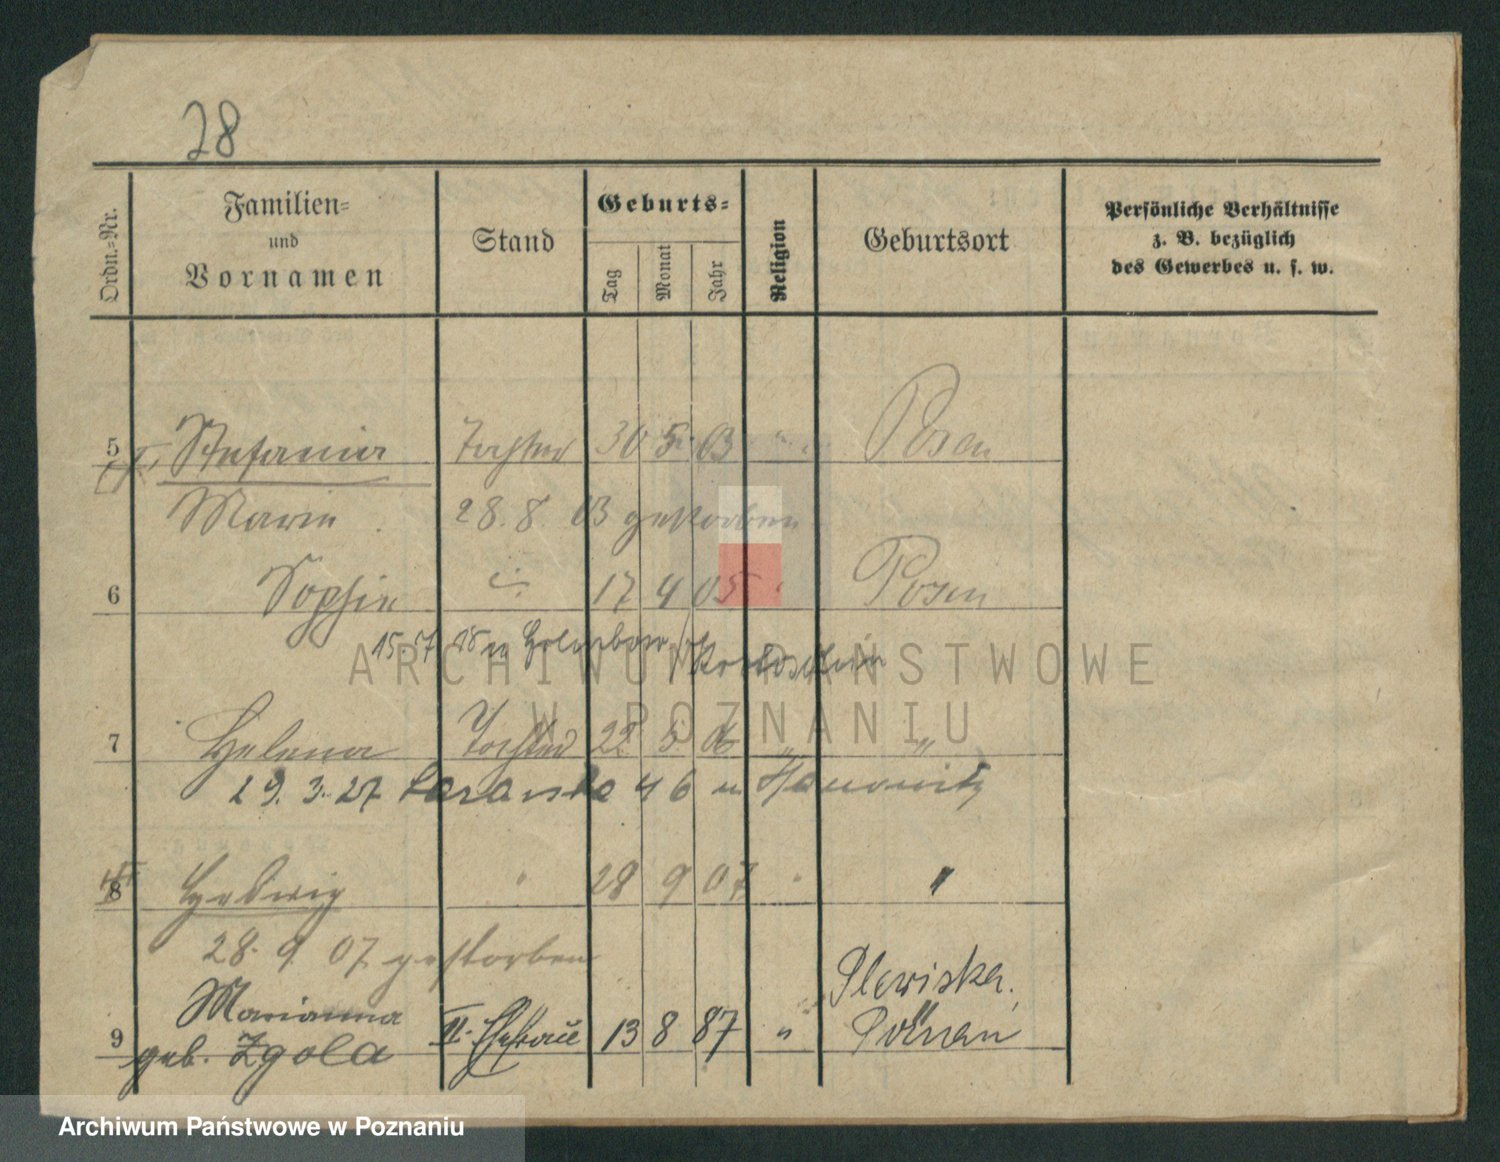 28
Ordn.-Nr.
Familien-
und
Vornamen
Stand
Geburts-
Tag
Monat
Jahr
Religion
Geburtsort
Persönliche Verhältnisse
z. B. bezüglich
des Gewerbes u. s. w.
5 Stefania Tochter 30 5 03 " Posen
Marie 28. 8. 03 gestorben
6 Sophie 17 4 05 " Posen
15. 18 Krotoschin
7 Helena Tochter 22 5 " "
29. 3. 27 46 Hanowitz
8 Hedwig " 28 9 07 " "
28. 9 07 gestorben
Marianna Plewiska.
9 geb. Zgola II. Ehefrau 13 8 87 " Poznan
ARCHIWUM PAŃSTWOWE
W POZNANIU
Archiwum Państwowe w Poznaniu